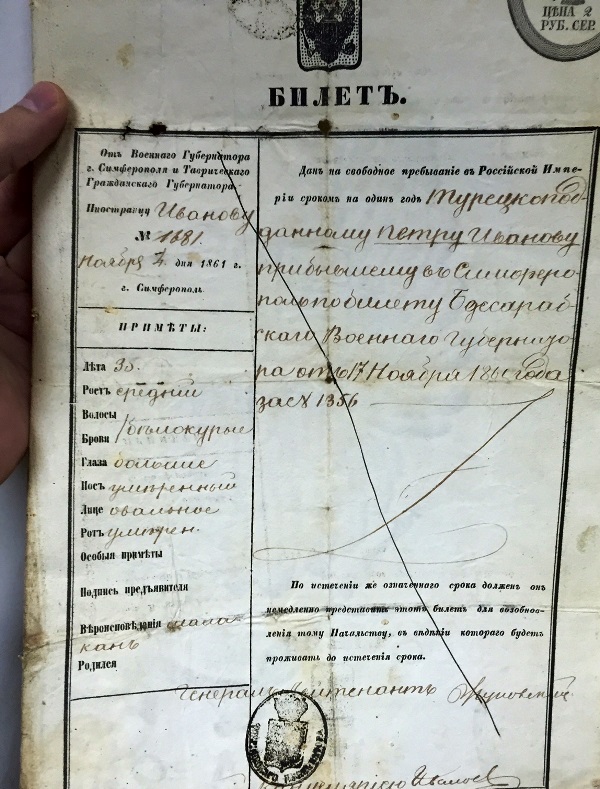 ЦѢНА 2
РУБ. СЕР.
БИЛЕТЪ.
Отъ Военнаго Губернатора
г. Симферополя и Таврическаго
Гражданскаго Губернатора
Иностранцу Иванову
№ 1681.
Ноября дня 1861 г.
г. Симферополь
ПРИМѢТЫ:
Лѣта 35.
Ростъ средній
Волосы
Брови бѣлокурые
Глаза большіе
Носъ умѣренный
Лице овальное
Ротъ умѣрен.
Особыя примѣты
Подпись предъявителя
Вѣроисповѣданія
Родился
Данъ на свободное пребываніе въ Россійской Импе-
ріи срокомъ на одинъ годъ Турецкопод
данному Петру Иванову
прибывшему въ Симферо
поль по билету Бессараб
скаго Военнаго Губернато
ра отъ 17 Ноября 186 года
за № 1356
По истеченіи же означеннаго срока долженъ онъ
немедленно представить этотъ билетъ для возобнов-
ленія тому Начальству, въ вѣдѣніи котораго будетъ
проживать до истеченія срока.
Генералъ Лейтенантъ Жуковскій